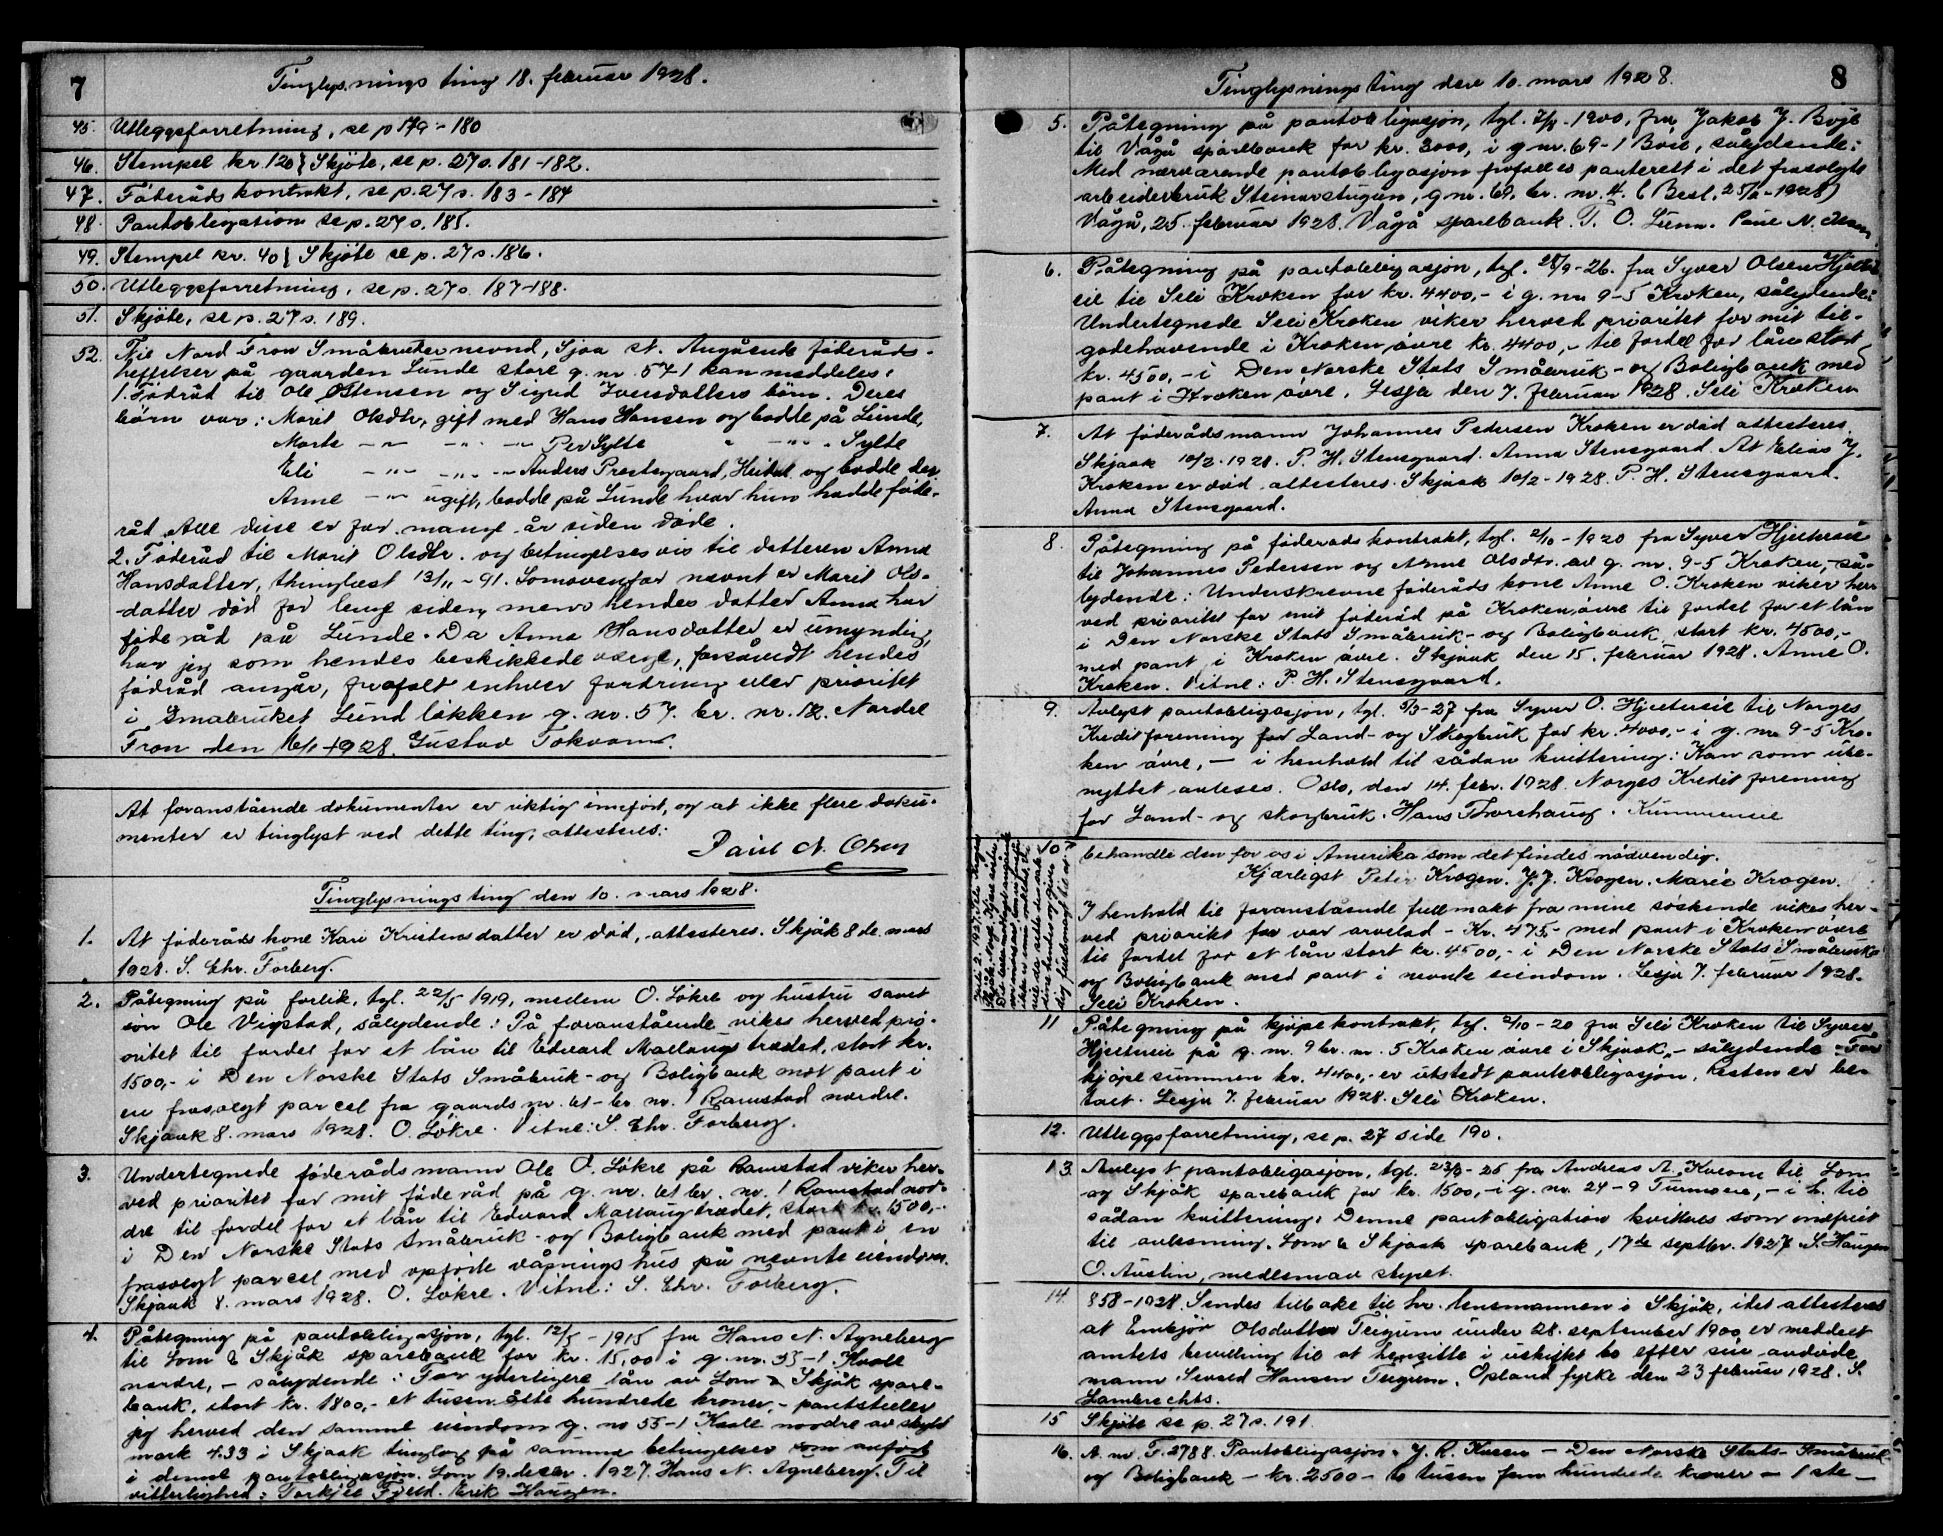 7
Tinglysnings ting 18. februar 1928.
45. Utleggsforretning, se p 179 - 180
46. Stempel kr. 120 } Skjöte, se p. 27 s. 181-182.
47. Föderåds kontrakt, se p. 27 s. 183 - 184
48. Pantobligation se p. 27 s. 185.
49. Stempel kr. 40 } Skjöte se p. 27 s. 186.
50. Utleggsforretning, se p. 27 s. 187-188.
51. Skjöte, se p. 27 s. 189.
52. Til Nord Fron Småbrukernevnd, Sjoa st. Angående föderåds-
heftelser på gaarden Lunde store g. nr. 57-1 kan meddeles:
1. Födråd til Ole Ostensen og Sigrid Iversdatters börn. Deres
börn var: Marit Olsdtr, gift med Hans Hansen og bodde på Lunde,
Marte - " - - " - - " Per Sylte " - " - " Sylte
Eli - " - - " - - Anders Prestegaard, Heidal og bodde der
Anne - " - ugift, bodde på Lunde hvor hun hadde föde-
råd. Alle disse er for mange år siden döde.
2. Föderåd til Marit Olsdtr. og betingelsesvis til datteren Anna
Hansdatter, thinglæst 13/11 - 91. Som ovenfor nevnt er Marit Ols-
datter död for lenge siden, mens hendes datter Anna har
föderåd på Lunde. Da Anna Hansdatter er umyndig,
har jeg som hendes beskikkede verge, forsåvidt hendes
födråd angår, frafalt enhver fordring eller prioritet
i småbruket Lund lökken g. nr. 57. br. nr. 12. Nordre
Fron den 16/1 1928. Gustav Tokvam.
At foranstående dokumenter er riktig innfört, og at ikke flere doku-
menter er tinglyst ved dette ting, attesteres:
Paul N. Olsen
Tinglysnings ting den 10. mars 1928.
1. At föderåds kone Kari Kristensdatter er död, attesteres. Skjåk 8 de mars
1928. S. Chr. Forberg.
2. Påtegning på forlik, tgl. 22/5 1919, mellem O. Lökre og hustru samt
sön Ole Vigstad, sålydende: På foranstående vikes herved pri-
oritet til fordel for et lån til Edvard Mallangstrædet, stort kr.
1500,- i Den Norske Stats Småbruk- og Boligbank mot pant i
en frasolgt parcel fra gaards nr. 61 - br. nr. 1 Ramstad nordre.
Skjaak 8. mars 1928. O. Lökre. Vitne: S. Chr. Forberg.
3. Undertegnede föderådsmann Ole O. Lökre på Ramstad viker her-
ved prioritet for mit föderåd på g. nr. 61 br. nr. 1 Ramstad nor-
dre til fordel for et lån til Edvard Mallangstrædet, stort kr. 1500,-
i Den Norske Stats Småbruk- og Boligbank med pant i en
frasolgt parcel med opförte våningshus på nevnte eiendom.
Skjaak 8. mars 1928. O. Lökre. Vitne: S. Chr. Forberg.
4. Påtegning på pantobligasjon, tgl. 12/5 - 1915 fra Hans N. Agneberg
til Lom & Skjåk sparebank for kr. 15,00 i g. nr. 55-1 Kvale
nordre, - sålydende: For yderligere lån av Lom & Skjåk spare-
bank, stort kr. 1800,- et tusen åtte hundrede kroner, - pantstiller
jeg herved den samme eiendom g. no 55-1 Kvale nordre av skyld
mark 4.33 i Skjaak tinglag på samme betingelser som anfört
i denne pantobligasjon. Lom 19. desbr. 1927. Hans N. Agneberg. Til
vitterlighed: Torkjel Fjeld. Erik Haugen.
Tinglysnings ting den 10. mars 1928.
8
5. Påtegning på pantobligasjon, tgl. 7/8 - 1900, fra Jakob J. Böje
til Vågå sparebank for kr. 3000, i g. nr. 69-1 Böie, sålydende:
Med nærværende pantobligasjon frafalles panterett i det frasolgte
arbeiderbruk Steinarstugun, g. nr. 69, br. nr. 4. (Besl. 25/2 - 1928)
Vågå, 25. februar 1928. Vågå sparebank. T. O. Lunn. Paul N.
6. Påtegning på pantobligasjon, tgl. 25/9 - 26. fra Syver Olsen Hjelter-
eie til Seli Kroken for kr. 4400,- i g. nr. 9-5 Kroken, sålydende:
Undertegnede Seli Kroken viker herved prioritet for mit til-
godehavende i Kroken övre kr. 4400,- til fordel for lån stort
kr. 4500,- i Den Norske Stats Småbruk- og Boligbank med
pant i Kroken övre. Lesja den 7. februar 1928. Seli Kroken
7. At föderådsmann Johannes Pedersen Kroken er död attesteres.
Skjaak 10/2 - 1928. P. H. Stensgaard. Anna Stensgaard. At Elias J.
Kroken er död attesteres. Skjaak 10/2 - 1928 P. H. Stensgaard.
Anna Stensgaard.
8. Påtegning på föderadskontrakt, tgl. 2/10 - 1920 fra Syver Hjeltereie
til Johannes Pedersen og Anne Olsdtr. av g. nr. 9-5 Kroken, - så-
lydende: Underskrevne föderåds kone Anne O. Kroken viker her-
ved prioritet for mit föderåd på Kroken övre til fordel for et lån
i Den Norske Stats Småbruk- og Boligbank, stort kr. 4500,-
med pant i Kroken övre. Skjaak den 15. februar 1928. Anne O.
Kroken. Vitne: P. H. Stensgaard.
9. Avlyst pantobligasjon, tgl. 5/3 - 27 fra Syver O. Hjeltereie til Norges
Kreditforening for Land- og Skogbruk for kr. 4000,- i g. nr. 9-5 Kro-
ken övre, - i henhold til sådan kvittering: Kan som ube-
nyttet avleses. Oslo, den 14. febr. 1928. Norges Kreditforening
for Land- og skogbruk. Hans Thorshaug.
10
behandle den for os i Amerika som det findes nödvendig.
Kjærligst Peter Krogen. J. J. Krogen. Marie Krogen.
I henhold til foranstående fullmakt fra mine söskende vikes her-
ved prioritet for vor arvelod - Kr. 475,- med pant i Kroken övre
til fordel for et lån stort kr. 4500,- i Den Norske Stats Småbruk-
og Boligbank med pant i nevnte eiendom. Lesja 7. februar 1928.
Seli Kroken.
11 Påtegning på kjöpekontrakt, tgl. 2/10 - 20 fra Seli Kroken til Syver
Hjeltereie på g. nr. 9 br. nr. 5 Kroken övre i Skjaak, - sålydende - For
kjöpesummen kr. 4400,- er utstedt pantobligasjon. Resten er be-
talt. Lesja 7. februar 1928. Seli Kroken.
12. Utleggsforretning, se p. 27 side 190.
13. Avlyst pantobligasjon, tgl. 23/3 - 25 fra Andreas A. Kveom til Lom
og Skjåk sparebank for kr. 1500,- i g. nr. 24-9 Turmoeie, - i h. til
sådan kvittering: Denne pantobligation kvitteres som indfriet
til avlesning. Lom & Skjaak sparebank, 17de septbr. 1927 S. Haugen
O. Austin, medlemav styret.
14. 858-1928. Sendes tilbake til hr. lensmannen i Skjåk, idet attesteres
at Embjör Olsdatter Teigum under 28. september 1900 er meddelt
amtets bevilling til at hensitte i uskiftet bo efter sin avdöde
mann Sevald Hansen Teigum. Opland fylke den 23 februar 1928. S.
Lambrechts.
15 Skjöte se p. 27 s. 191.
16. A. nr. F. 2788. Pantobligasjon. J. R. - Den Norske Stats- Småbruk-
og Boligbank - kr. 2500 - to tusen fem hundrede kroner - 1 ste -